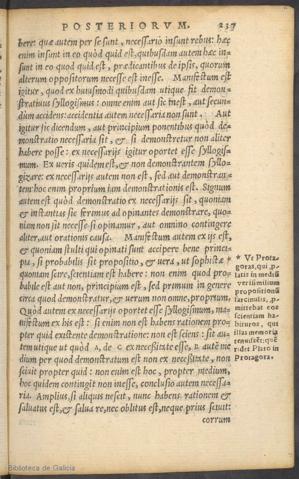 POSTERIORVM. 239
bere: quæ autem per se sunt, necessariò insunt rebus: hæc
enim insunt in eo quòd quid est, quibusdam autem hæc in-
sunt in eo quod quid est, prædicantibus de ipsis, quorum
alterum oppositorum necesse est inesse. Manifestum est
igitur, quod ex huiusmodi quibusdam utique fit demon-
stratiuus syllogismus: omne enim aut sic inest, aut secun-
dùm accidens: accidentia autem necessaria non sunt. Aut
igitur sic dicendum, aut principium ponentibus quòd de-
monstratio necessaria sit, & si demonstretur non aliter
habere posse: ex necessarijs igitur oportet esse syllogis-
mum. Ex ueris quidem est, & non demonstrantem syllo-
gizare: ex necessarijs autem non est, sed aut demonstran-
tem: hoc enim proprium iam demonstrationis est. Signum
autem est quòd demonstratio ex necessarijs sit, quoniam
& instantias sic ferimus ad opinantes demonstrare, quo-
niam non sit necesse si opinamur, aut omnino contingere
aliter, aut orationis causa. Manifestum autem ex ijs est,
& quoniam stulti qui opinati sunt accipere bene princi-
pia, si probabilis sit propositio, & uera, ut sophistæ *
quoniam scire, scientiam est habere: non enim quod pro-
babile est aut non, principium est, sed primum in genere
circa quod demonstratur, & uerum non omne, proprium.
Quòd autem ex necessarijs oportet esse syllogismum, ma-
nifestum ex his est: si enim non est habens rationem pro-
pter quid existente demonstratione: non est sciens: sit au-
tem utique ut quòd A, de C ex necessitate esse, B autē me
dium per quod demonstratum est non ex necessitate, non
scit propter quid: non enim est hoc, propter medium,
hoc quidem contingit non inesse, conclusio autem necessa-
ria. Amplius, si aliquis nescit, nunc habens rationem &
saluatus est, & salua re, nec oblitus est, neque prius sciuit:
corrum
* Vt Prota-
goras, qui
tenuisset: quē
Protagora.
Biblioteca de Galicia